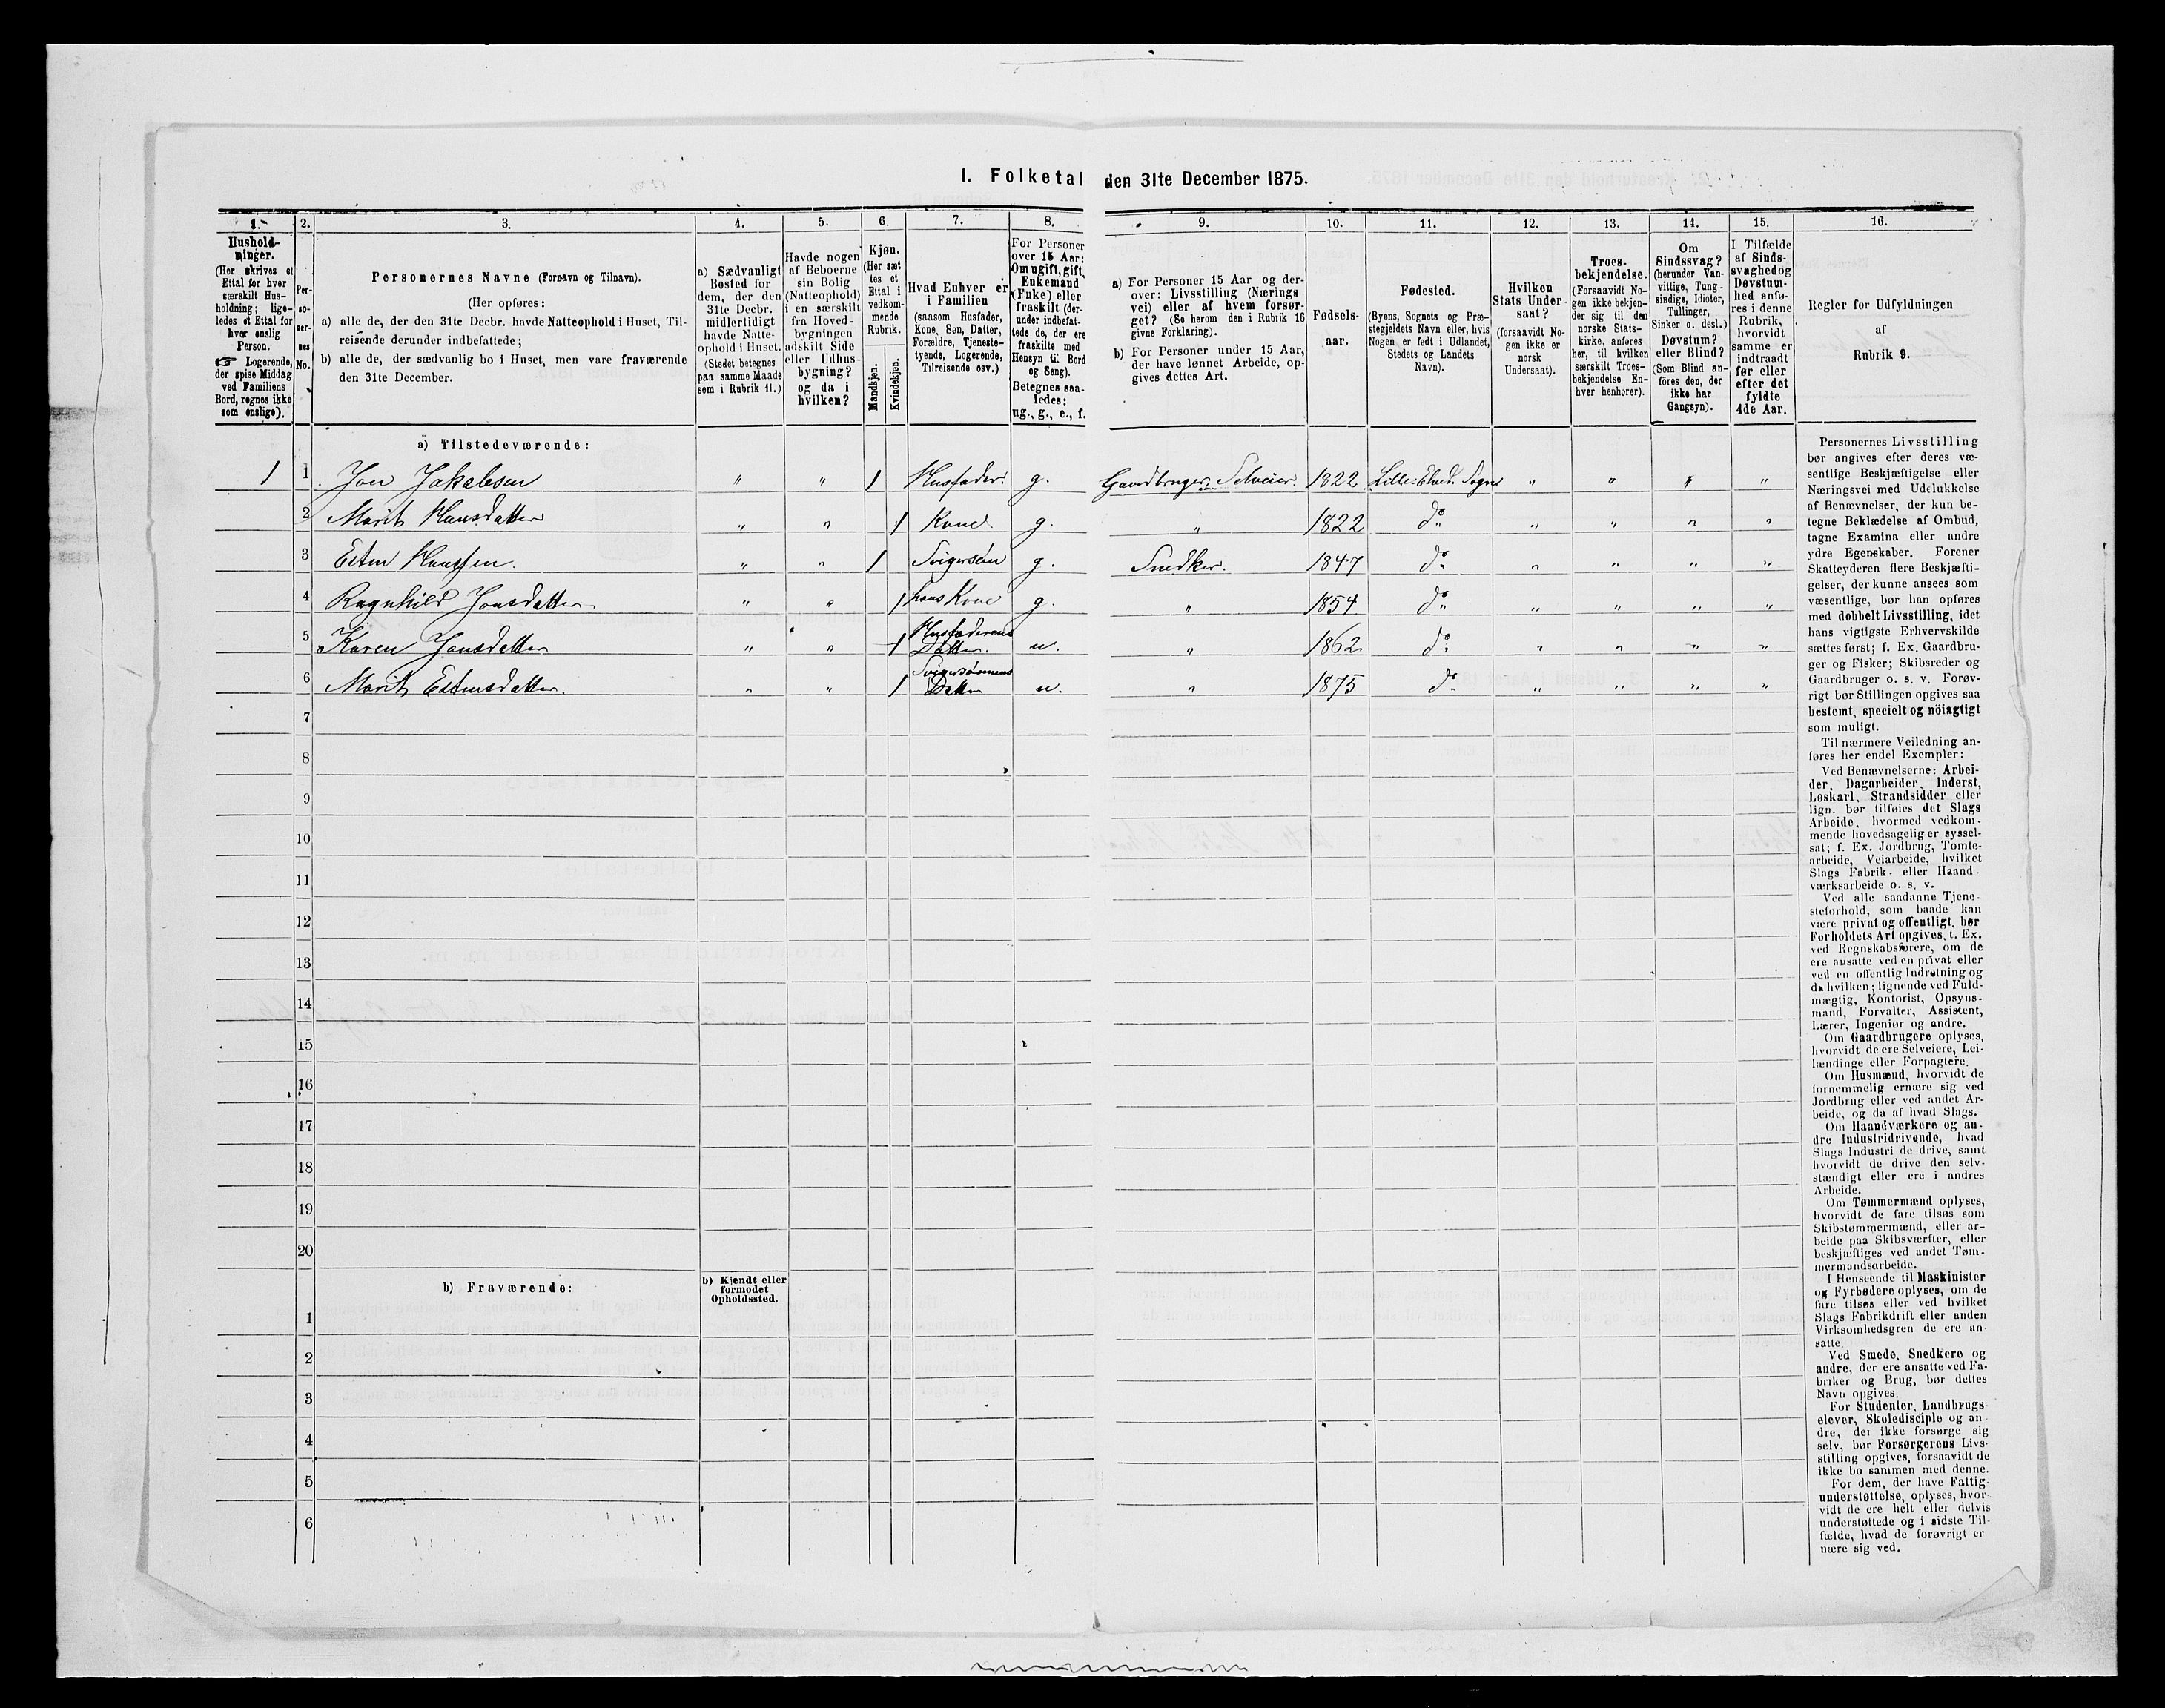 I. Folketal den 31te December 1875.
1. 2. 3. 4. 5. 6. 7. 8. 9. 10. 11. 12. 13. 14. 15. 16.
Hushold-
ninger.
(Her skrives et
Ettal for hver
særskilt Hus-
holdning; lige-
ledes et Ettal for
hver enslig
Person.
☞ Logerende,
der spise Middag
ved Familiens
Bord, regnes ikke
som enslige).
Per-
so-
ner-
nes
No.
Personernes Navne (Fornavn og Tilnavn).
(Her opføres:
a) alle de, der den 31te Decbr. havde Natteophold i Huset, Til-
reisende derunder indbefattede;
b) alle de, der sædvanlig bo i Huset, men vare fraværende
den 31te December.
a) Sædvanligt
Bosted for
dem, der den
31te Decbr.
midlertidigt
havde Natte-
ophold i Huset.
(Stedet betegnes
paa samme Maade
som i Rubrik 11.)
Havde nogen
af Beboerne
sin Bolig
(Natteophold)
i en særskilt
fra Hoved-
bygningen
adskilt Side
eller Udhus-
bygning?
og da i
hvilken?
Kjøn.
(Her sæt
tes et
Ettal i
vedkom-
mende
Rubrik.
Mandkjøn.
Kvindekjøn.
Hvad Enhver er
i Familien
(saasom Husfader,
Kone, Søn, Datter,
Forældre, Tjeneste-
tyende, Logerende,
Tilreisende osv.)
For Personer
over 15 Aar:
Om ugift, gift,
Enkemand
(Enke) eller
fraskilt (der-
under indbefat-
tede de, der ere
fraskilte med
Hensyn til Bord
og Seng).
Betegnes saa-
ledes:
ug., g., e., f.
a) For Personer 15 Aar og der-
over: Livsstilling (Nærings
vei) eller af hvem forsør-
get? (Se herom den i Rubrik 16
givne Forklaring).
b) For Personer under 15 Aar,
der have lønnet Arbeide, op-
gives dettes Art.
Fødsels-
aar.
Fødested.
(Byens, Sognets og Præ-
stegjeldets Navn eller, hvis
Nogen er født i Udlandet,
Stedets og Landets
Navn).
Hvilken
Stats Under-
saat?
(forsaavidt No-
gen ikke er
norsk
Undersaat).
Troes-
bekjendelse.
(Forsaavidt No-
gen ikke bekjen-
der sig til den
norske Stats-
kirke, anføres
her, til hvilken
særskilt Troes-
bekjendelse En-
hver henhører).
Om
Sindssvag?
(herunder Van-
vittige, Tung-
sindige, Idioter,
Tullinger,
Sinker o. desl.)
Døvstum?
eller Blind?
(Som Blind an-
føres den, der
ikke har
Gangsyn).
I Tilfælde
af Sinds-
svaghed og
Døvstum-
hed anfø-
res i denne
Rubrik,
hvorvidt
samme er
indtraadt
før eller
efter det
fyldte
4de Aar.
Regler for Udfyldningen
af
Rubrik 9.
a) Tilstedeværende:
1 1 Jon Jakobsen " " 1 Husfader. g. Gaardbruger, Selveier. 1822 Lille-Elvd. Sogn " " " "
2 Marit Hansdatter " " 1 Kone. g. " 1822 do " " " "
3 Esten Hanssen. " " 1 Svigersøn g. Snedker. 1847 do " " " "
4 Ragnhild Jonsdatter. " " 1 hans Kone g. " 1854 do " " " "
5 Karen Jonsdatter " " 1 Husfaderens Datter. u. " 1862 do " " " "
6 Marit Estensdatter. " " 1 Svigersønnens Datter u. " 1875 do " " " "
7
8
9
10
11
12
13
14
15
16
17
18
19
20
b) Fraværende:
b) Kjendt eller
formodet
Opholdssted.
1
2
3
4
5
6
Personernes Livsstilling
bør angives efter deres væ-
sentlige Beskjæftigelse eller
Næringsvei med Udelukkelse
af Benævnelser, der kun be-
tegne Beklædelse af Ombud,
tagne Examina eller andre
ydre Egenskaber. Forener
Skatteyderen flere Beskjæfti-
gelser, der kunne ansees som
væsentlige, bør han opføres
med dobbelt Livsstilling, idet
hans vigtigste Erhvervskilde
sættes først; f. Ex. Gaardbru-
ger og Fisker; Skibsreder og
Gaardbruger o. s. v. Forøv-
rigt bør Stillingen opgives saa
bestemt, specielt og nöiagtigt
som muligt.
Til nærmere Veiledning an-
føres her endel Exempler:
Ved Benævnelserne: Arbei-
der, Dagarbeider, Inderst,
Løskarl, Strandsidder eller
lign. bør tilføies det Slags
Arbeide, hvormed vedkom-
mende hovedsagelig er syssel-
sat; f. Ex. Jordbrug, Tomte-
arbeide, Veiarbeide, hvilket
Slags Fabrik- eller Haand-
værksarbeide o. s. v.
Ved alle saadanne Tjene-
steforhold, som baade kan
være privat og offentligt, bør
Forholdets Art opgives, t. Ex.
ved Regnskabsførere, om de
ere ansatte ved en privat eller
ved en offentlig Indretning og
da hvilken; lignende ved Fuld-
mægtig, Kontorist, Opsyns-
mand, Forvalter, Assistent,
Lærer, Ingeniør og andre.
Om Gaardbrugere oplyses,
hvorvidt de ere Selveiere, Lei-
lændinge eller Forpagtere.
Om Husmænd, hvorvidt de
fornemmelig ernære sig ved
Jordbrug eller ved andet Ar-
beide, og da af hvad Slags.
Om Haandværkere og an-
dre Industridrivende, hvad
Slags Industri de drive, samt
hvorvidt de drive den selv-
stændigt eller ere i andres
Arbeide.
Om Tømmermænd oplyses,
hvorvidt de fare tilsøs som
Skibstømmermænd, eller ar-
beide paa Skibsværfter, eller
beskjæftiges ved andet Tøm-
mermandsarbeide.
I Henseende til Maskinister
og Fyrbødere oplyses, om de
fare tilsøs eller ved hvilket
Slags Fabrikdrift eller anden
Virksomhedsgren de ere an-
satte.
Ved Smede, Snedkere og
andre, der ere ansatte ved Fa-
briker og Brug, bør dettes
Navn opgives.
For Studenter, Landbrugs
elever, Skoledisciple og an-
dre, der ikke forsørge sig
selv, bør Forsørgerens Livs-
stilling opgives, forsaavidt de
ikke bo sammen med denne.
For dem, der have Fattig-
understøttelse, oplyses, hvor-
vidt de ere helt eller delvis
understøttede og i sidste Til-
fælde, hvad de forøvrigt er
nære sig ved.